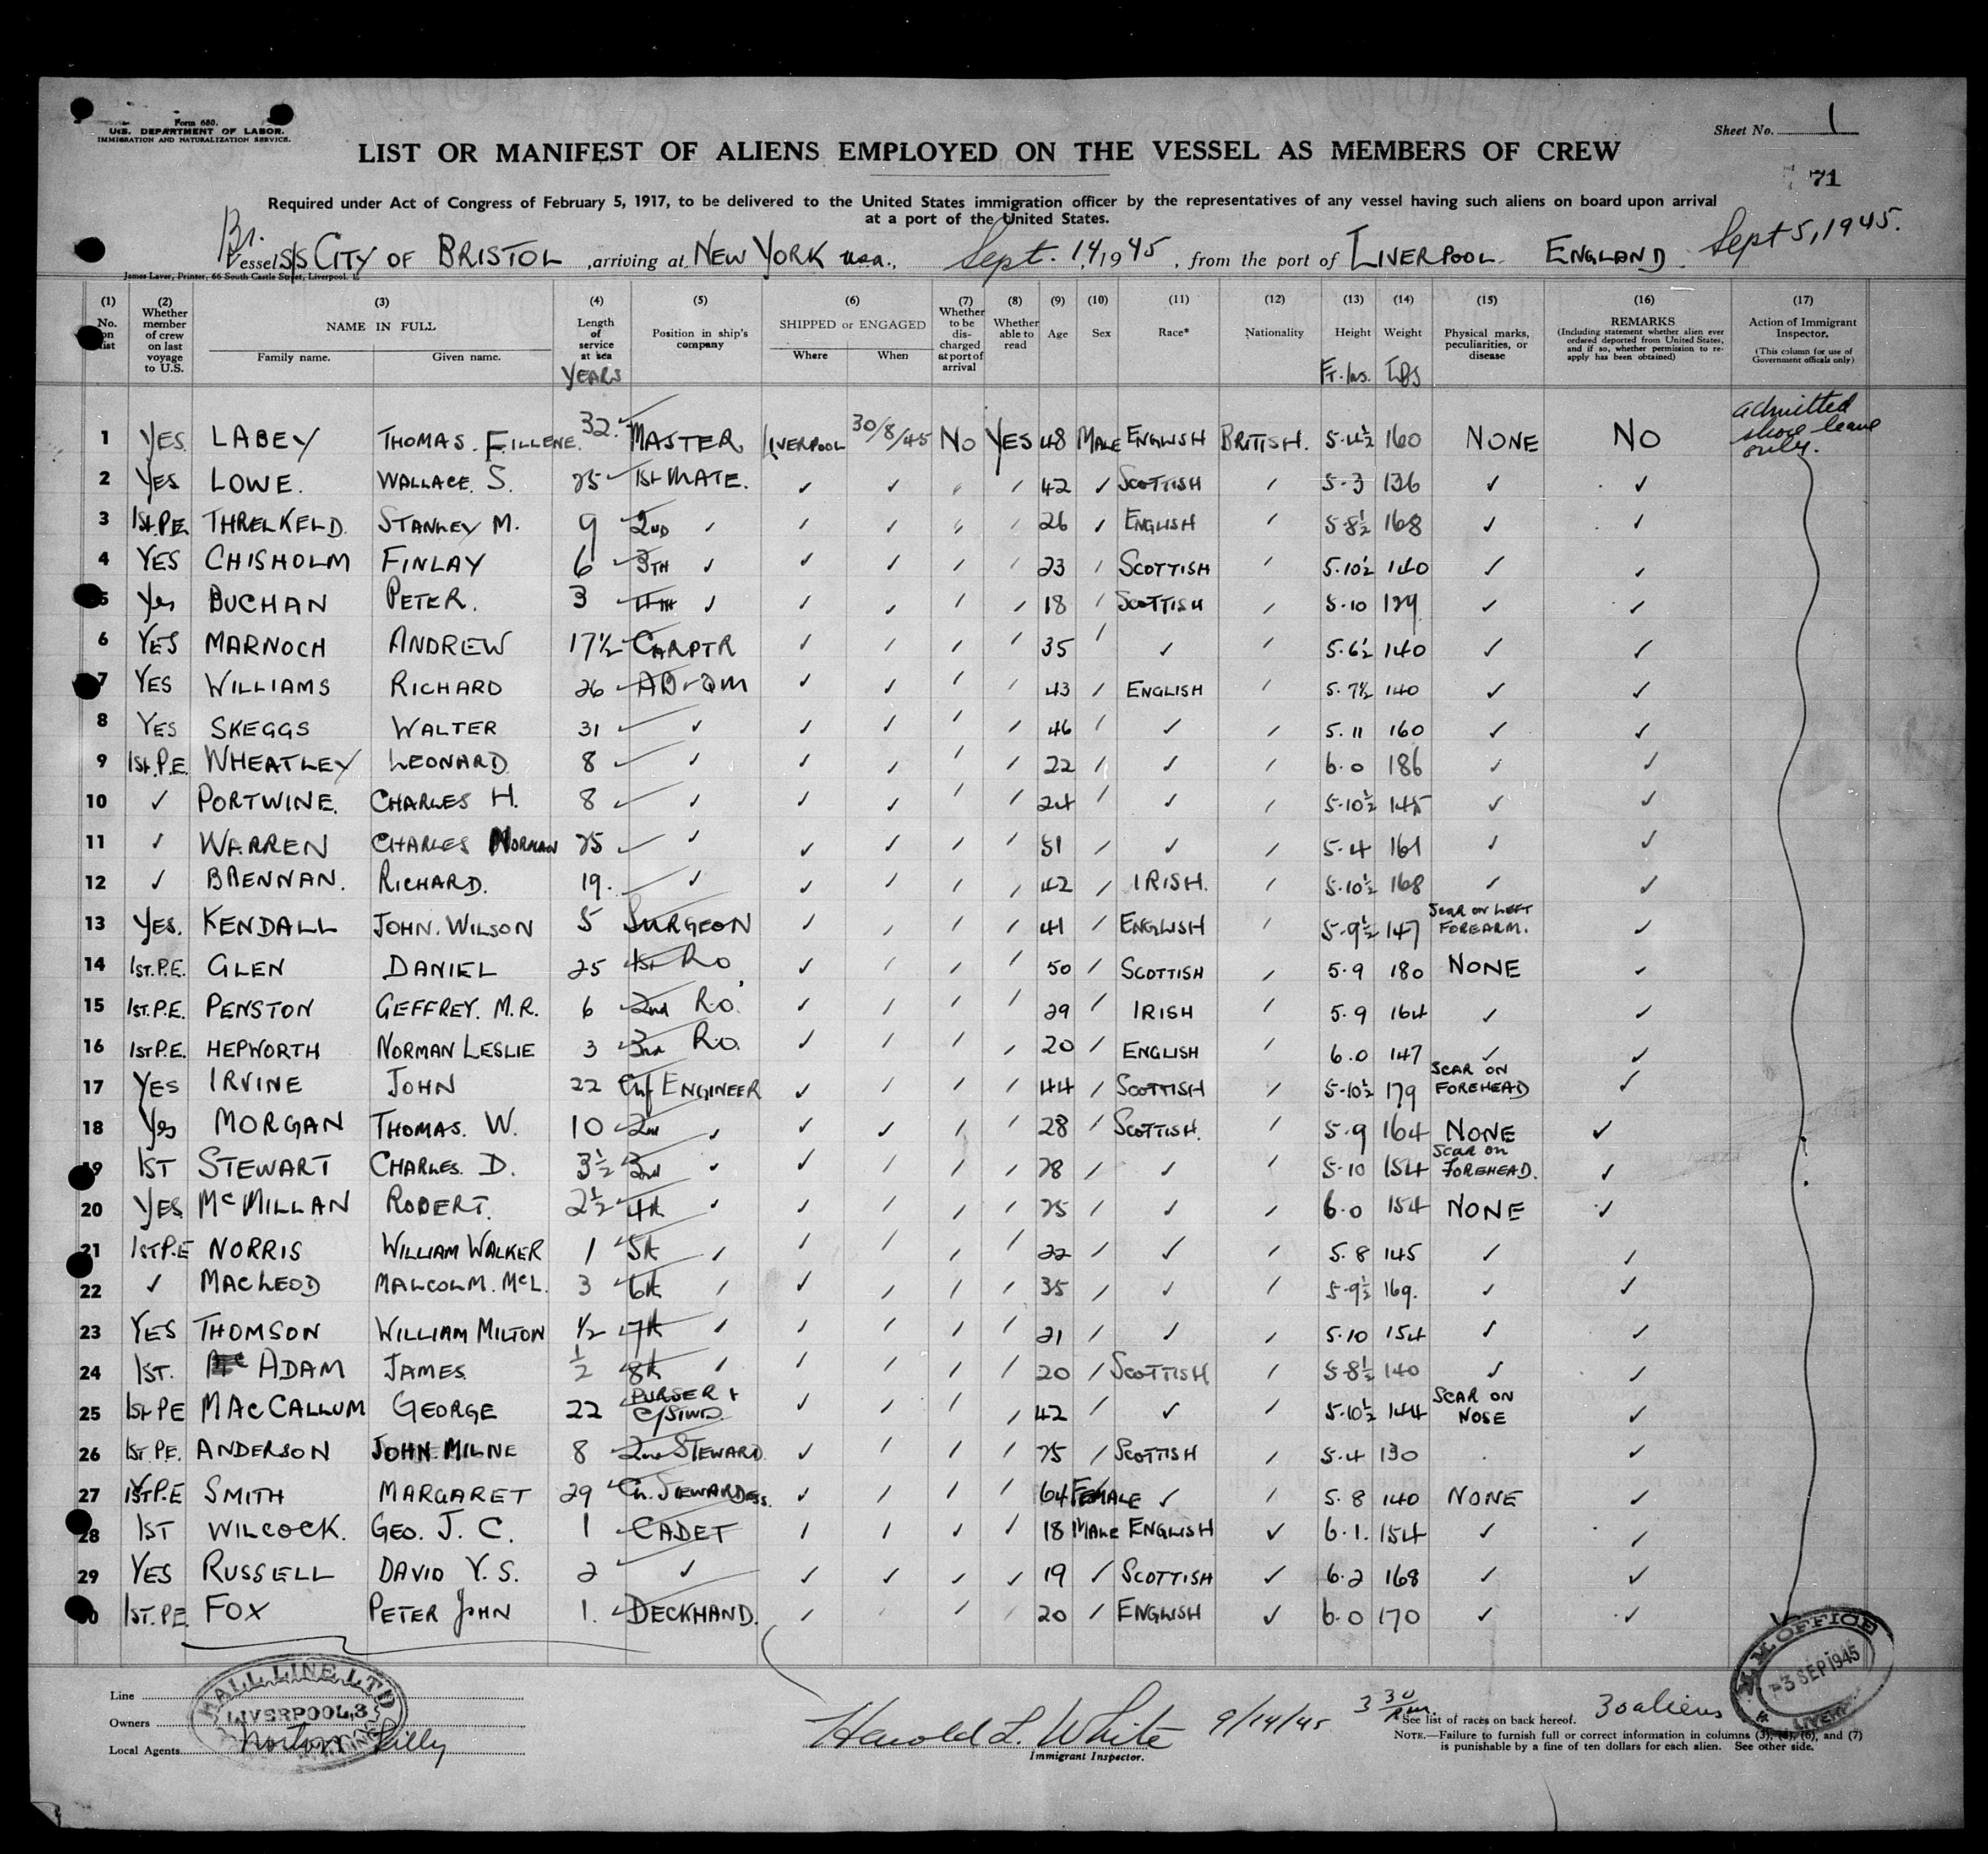 Form 680.
U.S. DEPARTMENT OF LABOR.
IMMIGRATION AND NATURALIZATION SERVICE.
Sheet No. 1
LIST OR MANIFEST OF ALIENS EMPLOYED ON THE VESSEL AS MEMBERS OF CREW
71
Required under Act of Congress of February 5, 1917, to be delivered to the United States immigration officer by the representatives of any vessel having such aliens on board upon arrival
at a port of the United States.
Br.
Vessel S/S CITY OF BRISTOL, arriving at NEW YORK USA., Sept. 14, 1945, from the port of LIVERPOOL ENGLAND. Sept 5, 1945.
James Laver, Printer, 66 South Castle Street, Liverpool. 1.
(1) No. on list (2) Whether member of crew on last voyage to U.S. (3) NAME IN FULL Family name. Given name. (4) Length of service at sea YEARS (5) Position in ship's company (6) SHIPPED or ENGAGED Where When (7) Whether to be discharged at port of arrival (8) Whether able to read (9) Age (10) Sex (11) Race* (12) Nationality (13) Height FT. INS. (14) Weight LBS (15) Physical marks, peculiarities, or disease (16) REMARKS (Including statement whether alien ever ordered deported from United States, and if so, whether permission to re-apply has been obtained) (17) Action of Immigrant Inspector. (This column for use of Government officials only)
1 YES LABEY THOMAS. FILLENE 32 MASTER LIVERPOOL 30/8/45 NO YES 48 MALE ENGLISH BRITISH. 5-4½ 160 NONE NO admitted shore leave only.
2 YES LOWE. WALLACE S. 25 1st MATE. ✓ ✓ ✓ ✓ 42 ✓ SCOTTISH ✓ 5-3 136 ✓ ✓
3 1st.P.E. THRELKELD. STANLEY M. 9 2ND ✓ ✓ ✓ ✓ ✓ 26 ✓ ENGLISH ✓ 5-8½ 168 ✓ ✓
4 YES CHISHOLM FINLAY 6 3TH ✓ ✓ ✓ ✓ ✓ 23 ✓ SCOTTISH ✓ 5.10½ 140 ✓ ✓
5 Yes BUCHAN PETER. 3 4TH ✓ ✓ ✓ ✓ ✓ 18 ✓ SCOTTISH ✓ 5.10 129 ✓ ✓
6 YES MARNOCH ANDREW 17½ CARPTR ✓ ✓ ✓ ✓ 35 ✓ ✓ ✓ 5.6½ 140 ✓ ✓
7 YES WILLIAMS RICHARD 26 AB-QM ✓ ✓ ✓ ✓ 43 ✓ ENGLISH ✓ 5.7½ 140 ✓ ✓
8 YES SKEGGS WALTER 31 ✓ ✓ ✓ ✓ ✓ 46 ✓ ✓ ✓ 5.11 160 ✓ ✓
9 1st.P.E. WHEATLEY LEONARD 8 ✓ ✓ ✓ ✓ ✓ 22 ✓ ✓ ✓ 6.0 186 ✓ ✓
10 ✓ PORTWINE. CHARLES H. 8 ✓ ✓ ✓ ✓ ✓ 24 ✓ ✓ ✓ 5.10½ 145 ✓ ✓
11 ✓ WARREN CHARLES NORMAN 25 ✓ ✓ ✓ ✓ ✓ 51 ✓ ✓ ✓ 5.4 161 ✓ ✓
12 ✓ BRENNAN. RICHARD. 19. ✓ ✓ ✓ ✓ ✓ 42 ✓ IRISH. ✓ 5.10½ 168 ✓ ✓
13 YES. KENDALL JOHN. WILSON 5 SURGEON ✓ ✓ ✓ ✓ 41 ✓ ENGLISH ✓ 5-9½ 147 SCAR ON LEFT FOREARM. ✓
14 1ST.P.E. GLEN DANIEL 25 1st RO ✓ ✓ ✓ ✓ 50 ✓ SCOTTISH ✓ 5.9 180 NONE ✓
15 1ST.P.E. PENSTON GEFFREY. M.R. 6 2nd R.O. ✓ ✓ ✓ ✓ 29 ✓ IRISH ✓ 5.9 164 ✓ ✓
16 1ST P.E. HEPWORTH NORMAN LESLIE 3 3rd R.O. ✓ ✓ ✓ ✓ 20 ✓ ENGLISH ✓ 6.0 147 ✓ ✓
17 YES IRVINE JOHN 22 Chf ENGINEER ✓ ✓ ✓ ✓ 44 ✓ SCOTTISH ✓ 5-10½ 179 SCAR ON FOREHEAD ✓
18 Yes MORGAN THOMAS. W. 10 2nd ✓ ✓ ✓ ✓ ✓ 28 ✓ SCOTTISH. ✓ 5.9 164 NONE ✓
19 1ST STEWART CHARLES. D. 3½ 3rd ✓ ✓ ✓ ✓ ✓ 28 ✓ ✓ ✓ 5-10 154 SCAR ON FOREHEAD. ✓
20 YES MCMILLAN ROBERT. 2½ 4th ✓ ✓ ✓ ✓ ✓ 25 ✓ ✓ ✓ 6.0 154 NONE ✓
21 1ST P.E NORRIS WILLIAM WALKER 1 5th ✓ ✓ ✓ ✓ ✓ 22 ✓ ✓ ✓ 5.8 145 ✓ ✓
22 ✓ MACLEOD MALCOLM. McL. 3 6th ✓ ✓ ✓ ✓ ✓ 35 ✓ ✓ ✓ 5-9½ 169. ✓ ✓
23 YES THOMSON WILLIAM MILTON ½ 7th ✓ ✓ ✓ ✓ ✓ 21 ✓ ✓ ✓ 5.10 154 ✓ ✓
24 1ST. ADAM JAMES ½ 8th ✓ ✓ ✓ ✓ ✓ 20 ✓ SCOTTISH ✓ 5-8½ 140 ✓ ✓
25 1st PE MACCALLUM GEORGE 22 PURSER + C/STWD. ✓ ✓ ✓ ✓ 42 ✓ ✓ ✓ 5-10½ 144 SCAR ON NOSE ✓
26 1ST PE. ANDERSON JOHN MILNE 8 2nd STEWARD ✓ ✓ ✓ ✓ 25 ✓ SCOTTISH ✓ 5.4 130 ✓
27 1ST P.E SMITH MARGARET 29 Ch. STEWARDESS. ✓ ✓ ✓ ✓ 64 FEMALE ✓ ✓ 5.8 140 NONE ✓
28 1ST WILCOCK. GEO. J. C. 1 CADET ✓ ✓ ✓ ✓ 18 MALE ENGLISH ✓ 6.1. 154 ✓ ✓
29 YES RUSSELL DAVID Y. S. 2 ✓ ✓ ✓ ✓ ✓ 19 ✓ SCOTTISH ✓ 6.2 168 ✓ ✓
30 1ST.PE. FOX PETER JOHN 1. DECKHAND. ✓ ✓ ✓ ✓ 20 ✓ ENGLISH ✓ 6.0 170 ✓ ✓
Line
Owners
Local Agents Norton Lilly
HALL LINE LTD
LIVERPOOL, 3
Harold L. White 9/14/45 3 30 p.m.
Immigrant Inspector.
30 aliens
M.M. OFFICE
-3 SEP 1945
*See list of races on back hereof.
NOTE.—Failure to furnish full or correct information in columns (3), (4), (6), and (7)
is punishable by a fine of ten dollars for each alien. See other side.